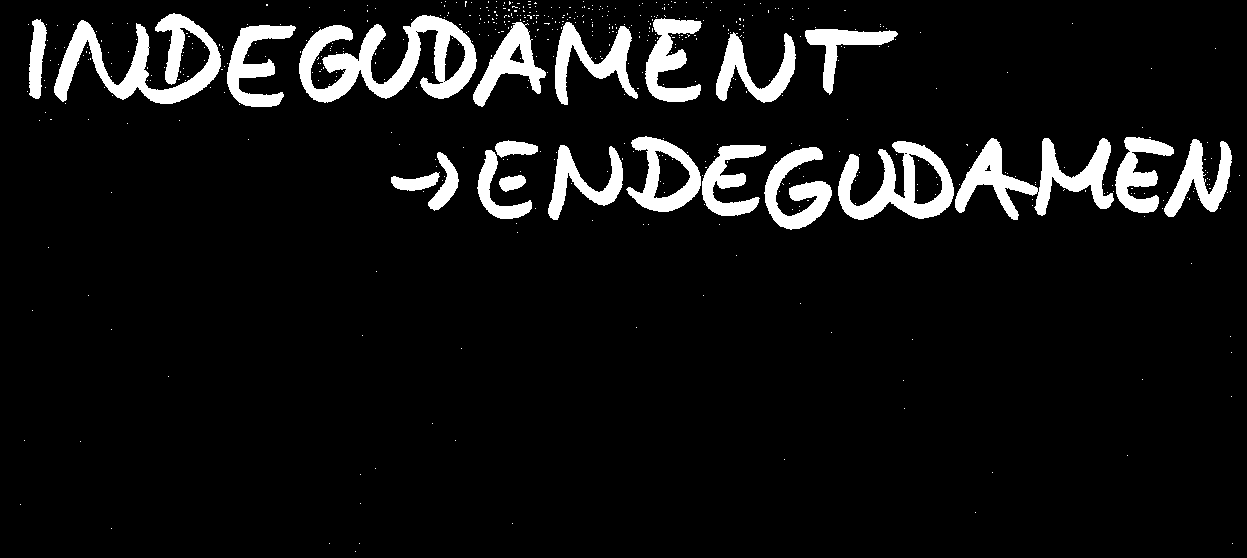 INDEGUDAMENT
→ ENDEGUDAMEN